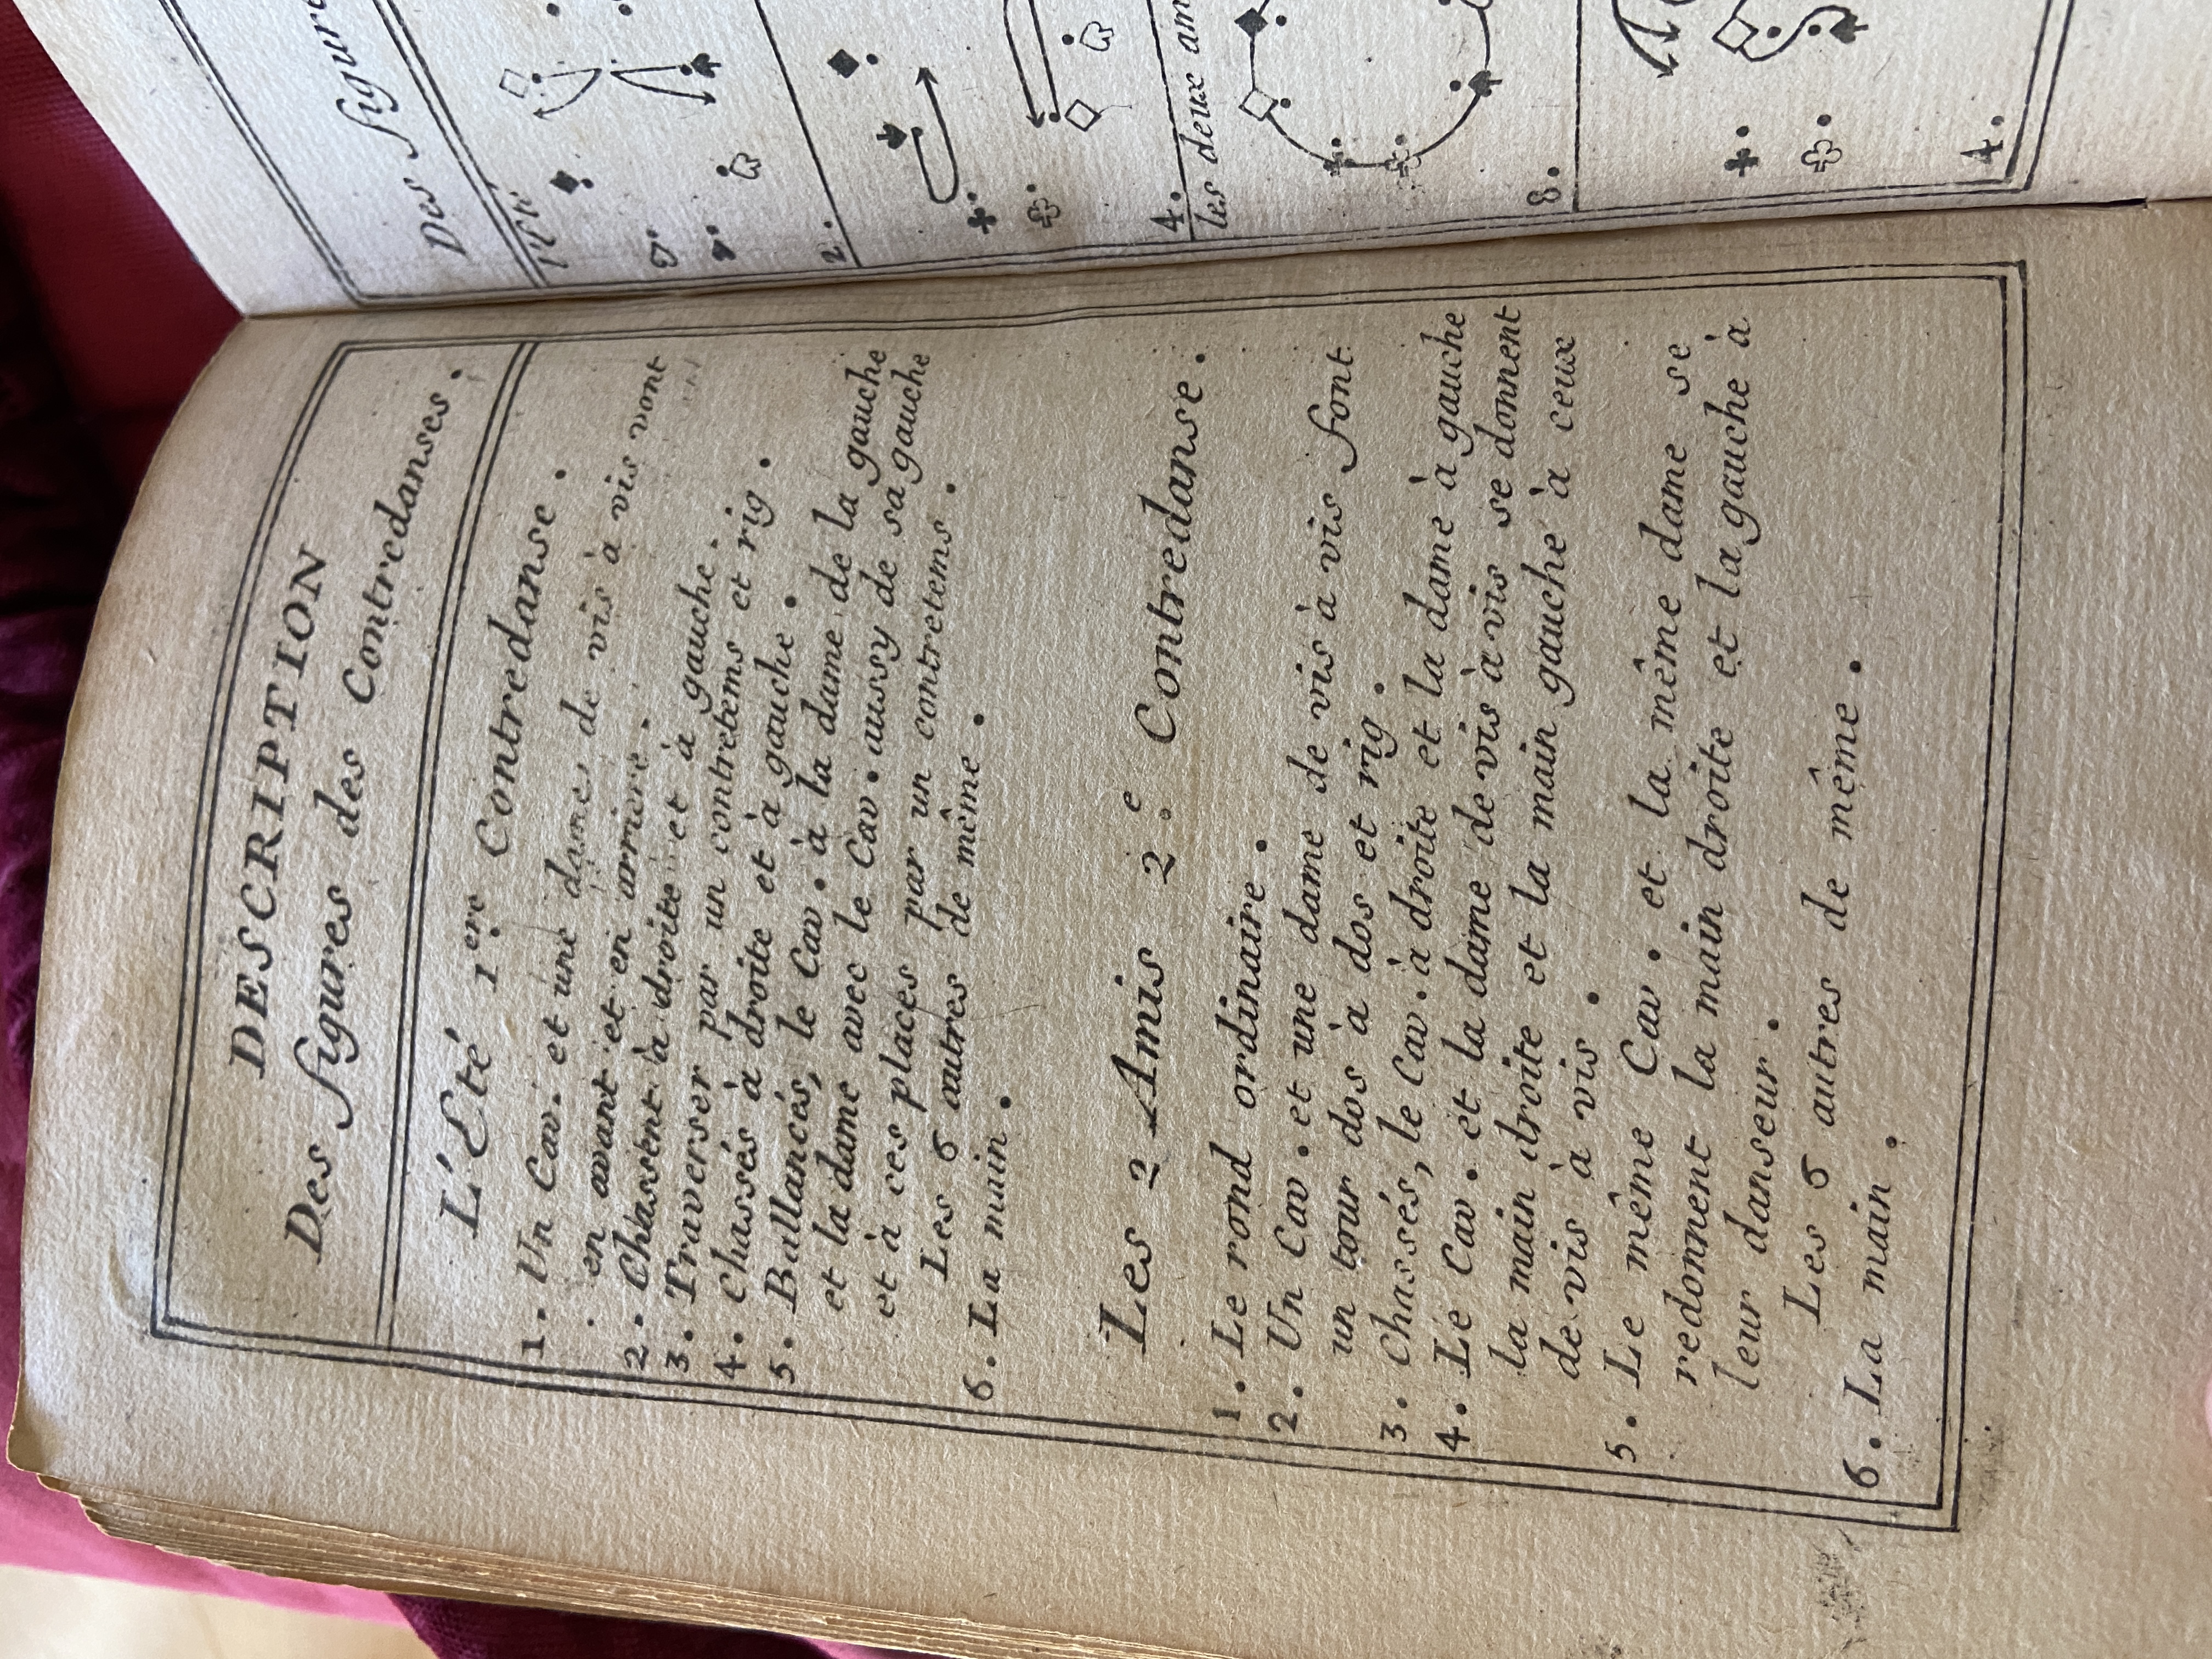 DESCRIPTION
Des figures des Contredanses.
L'Eté 1.ere Contredanse.
1. Un Cav. et une dame, de vis à vis vont
en avant et en arriere.
2. Chassent à droite et à gauche.
3. Traverser par un contretems et rig.
4. Chassés à droite et à gauche.
5. Ballancés, le Cav. à la dame de la gauche
et la dame avec le Cav. aussy de sa gauche
et à ces places par un contretems.
Les 6 autres de même.
6. La main.
Les 2 Amis 2.e Contredanse.
1. Le rond ordinaire.
2. Un Cav. et une dame de vis à vis font
un tour dos à dos et rig.
3. Chassés, le Cav. à droite et la dame à gauche
4. Le Cav. et la dame de vis à vis se donnent
la main droite et la main gauche à ceux
de vis à vis.
5. Le même Cav. et la même dame se
redonnent la main droite et la gauche à
leur danseur.
Les 6 autres de même.
6. La main.
Des figure
l'Eté
2.
4.
les deux am
8.
4.